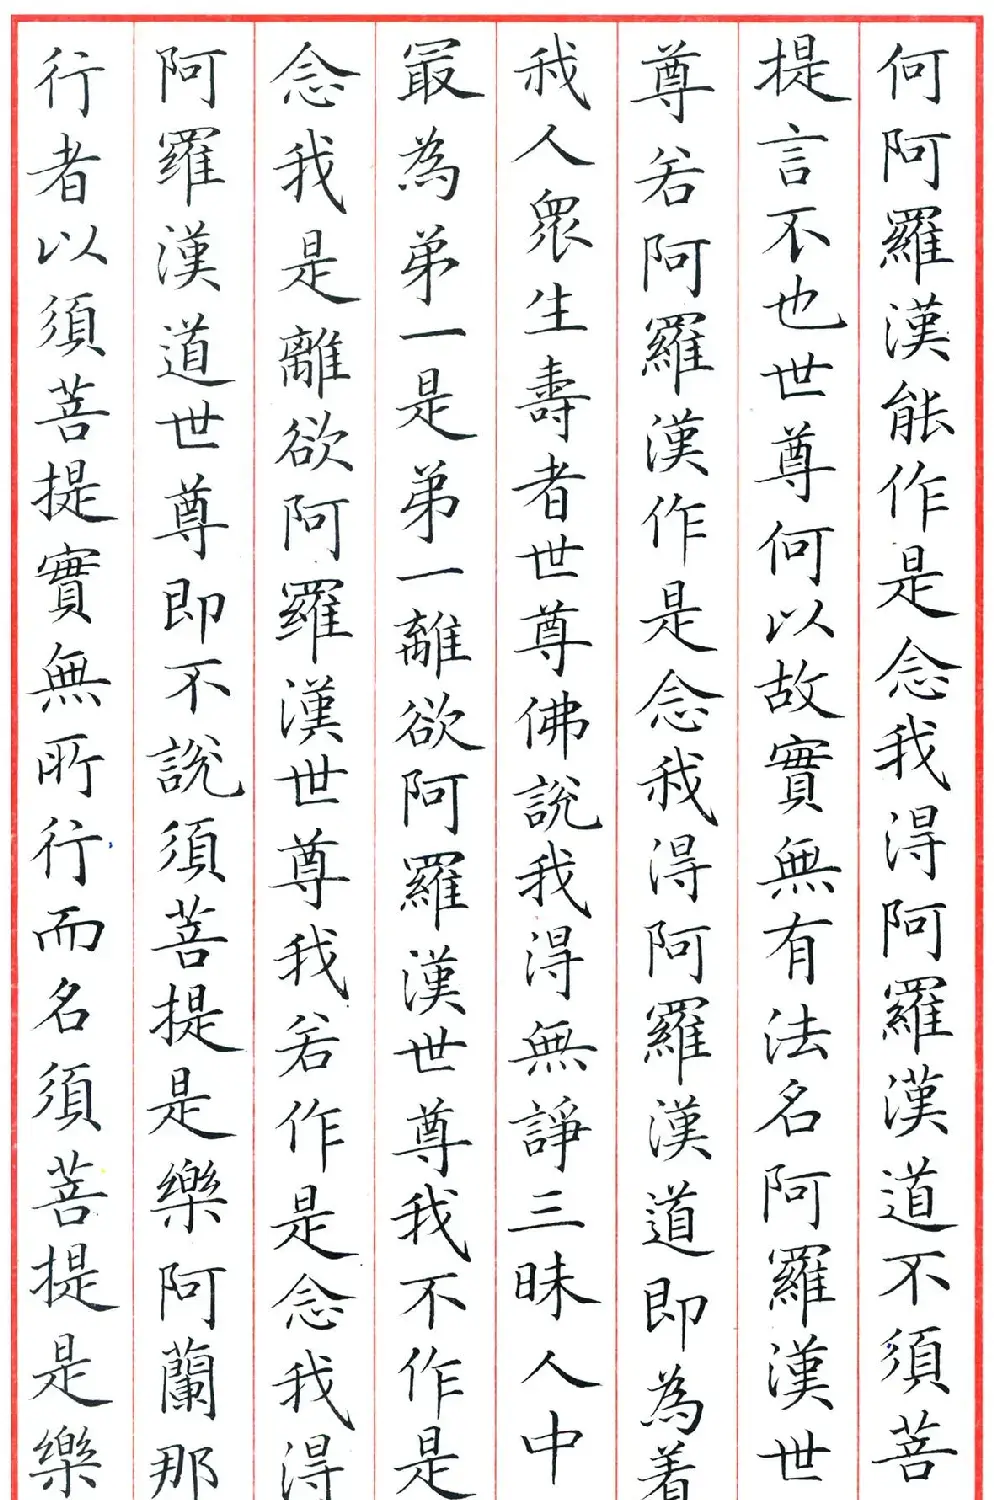 何阿羅漢能作是念我得阿羅漢道不須菩
提言不也世尊何以故實無有法名阿羅漢世
尊若阿羅漢作是念我得阿羅漢道即為着
我人衆生壽者世尊佛說我得無諍三昧人中
最為弟一是弟一離欲阿羅漢世尊我不作是
念我是離欲阿羅漢世尊我若作是念我得
阿羅漢道世尊即不說須菩提是樂阿蘭那
行者以須菩提實無所行而名須菩提是樂